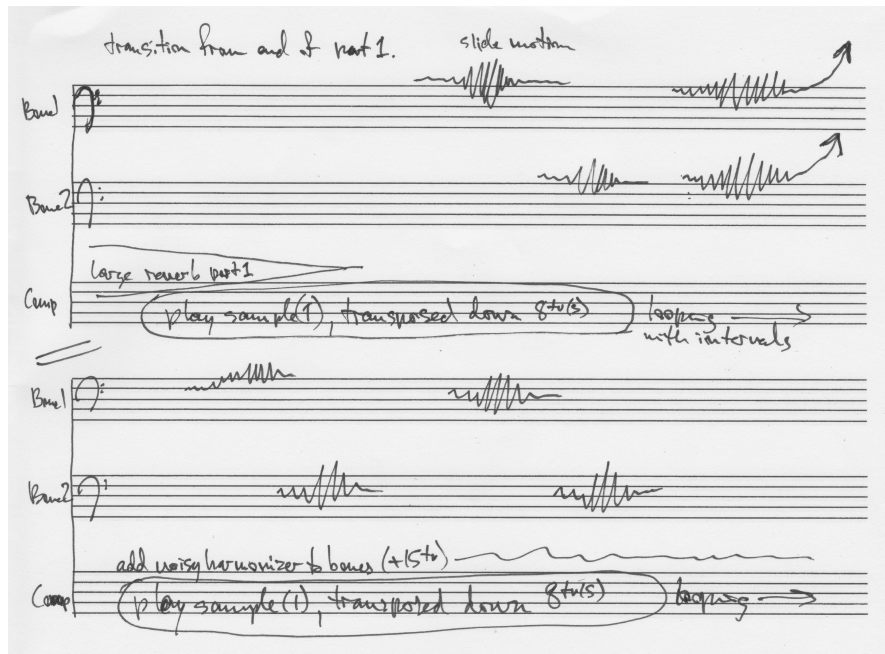 transition from end of part 1.
slide motion
Bone1
Bone2
large reverb part 1
Comp
play sample(1), transposed down 8tv(s)
looping
with intervals
Bone1
Bone2
add noisy harmonizer to bones (+15tv)
Comp
play sample(1), transposed down 8tv(s)
looping